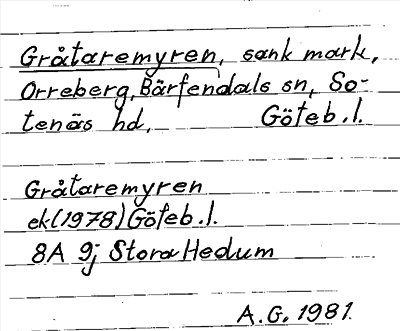 Gråtaremyren, sank mark,
Orreberg, Bärfendals sn, So-
tenäs hd, Göteb. l.
Gråtaremyren
ek (1978) Göteb. l.
8A 9j Stora Hedum
A.G. 1981.